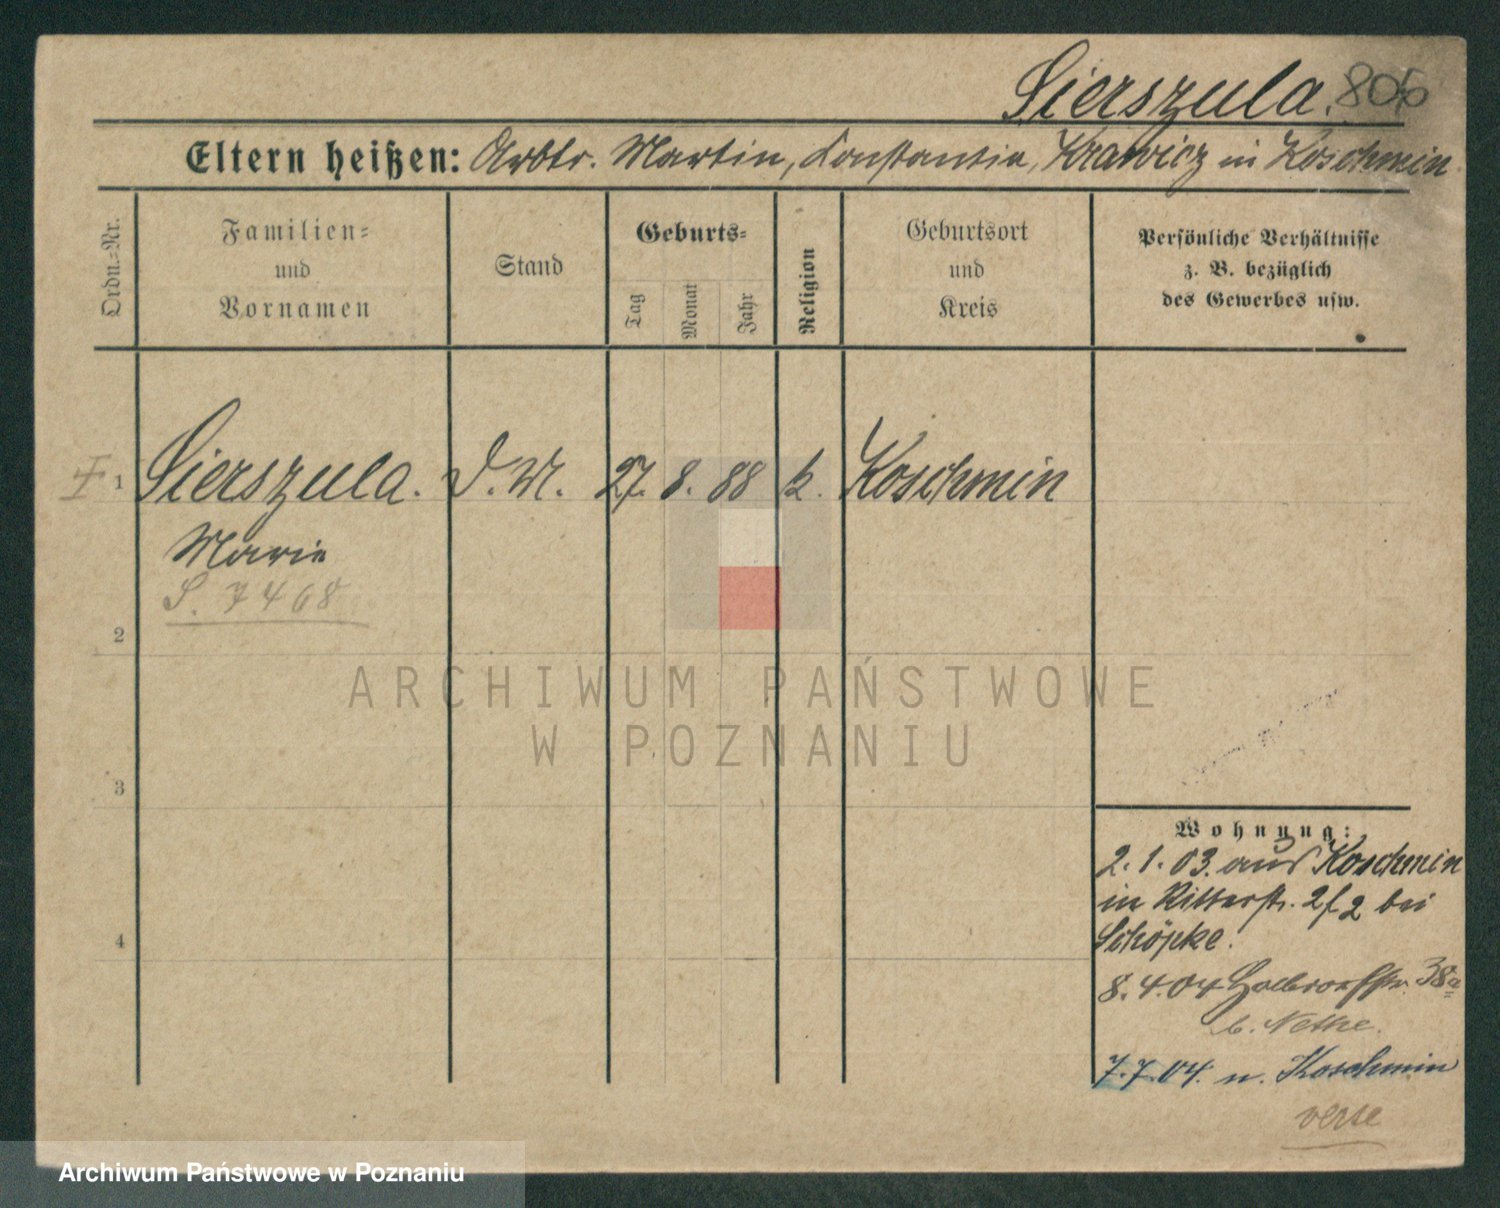 Sierszula. 806
Eltern heißen: Arbtr. Martin, Constantia, Krawicz in Koschmin
Ordn.-Nr.
Familien-
und
Vornamen
Stand
Geburts-
Tag
Monat
Jahr
Religion
Geburtsort
und
Kreis
Persönliche Verhältnisse
z. B. bezüglich
des Gewerbes usw.
1 Sierszula. D. M. 27. 8. 88 k. Koschmin
Marie
S. 7468
2
3
4
ARCHIWUM PAŃSTWOWE
W POZNANIU
Wohnung:
2. 1. 03. aus Koschmin
in Ritterstr. 2/2 bei
Schöpke.
8. 4. 04 38a
b. Nethe.
7. 7. 04. n. Koschmin
Archiwum Państwowe w Poznaniu